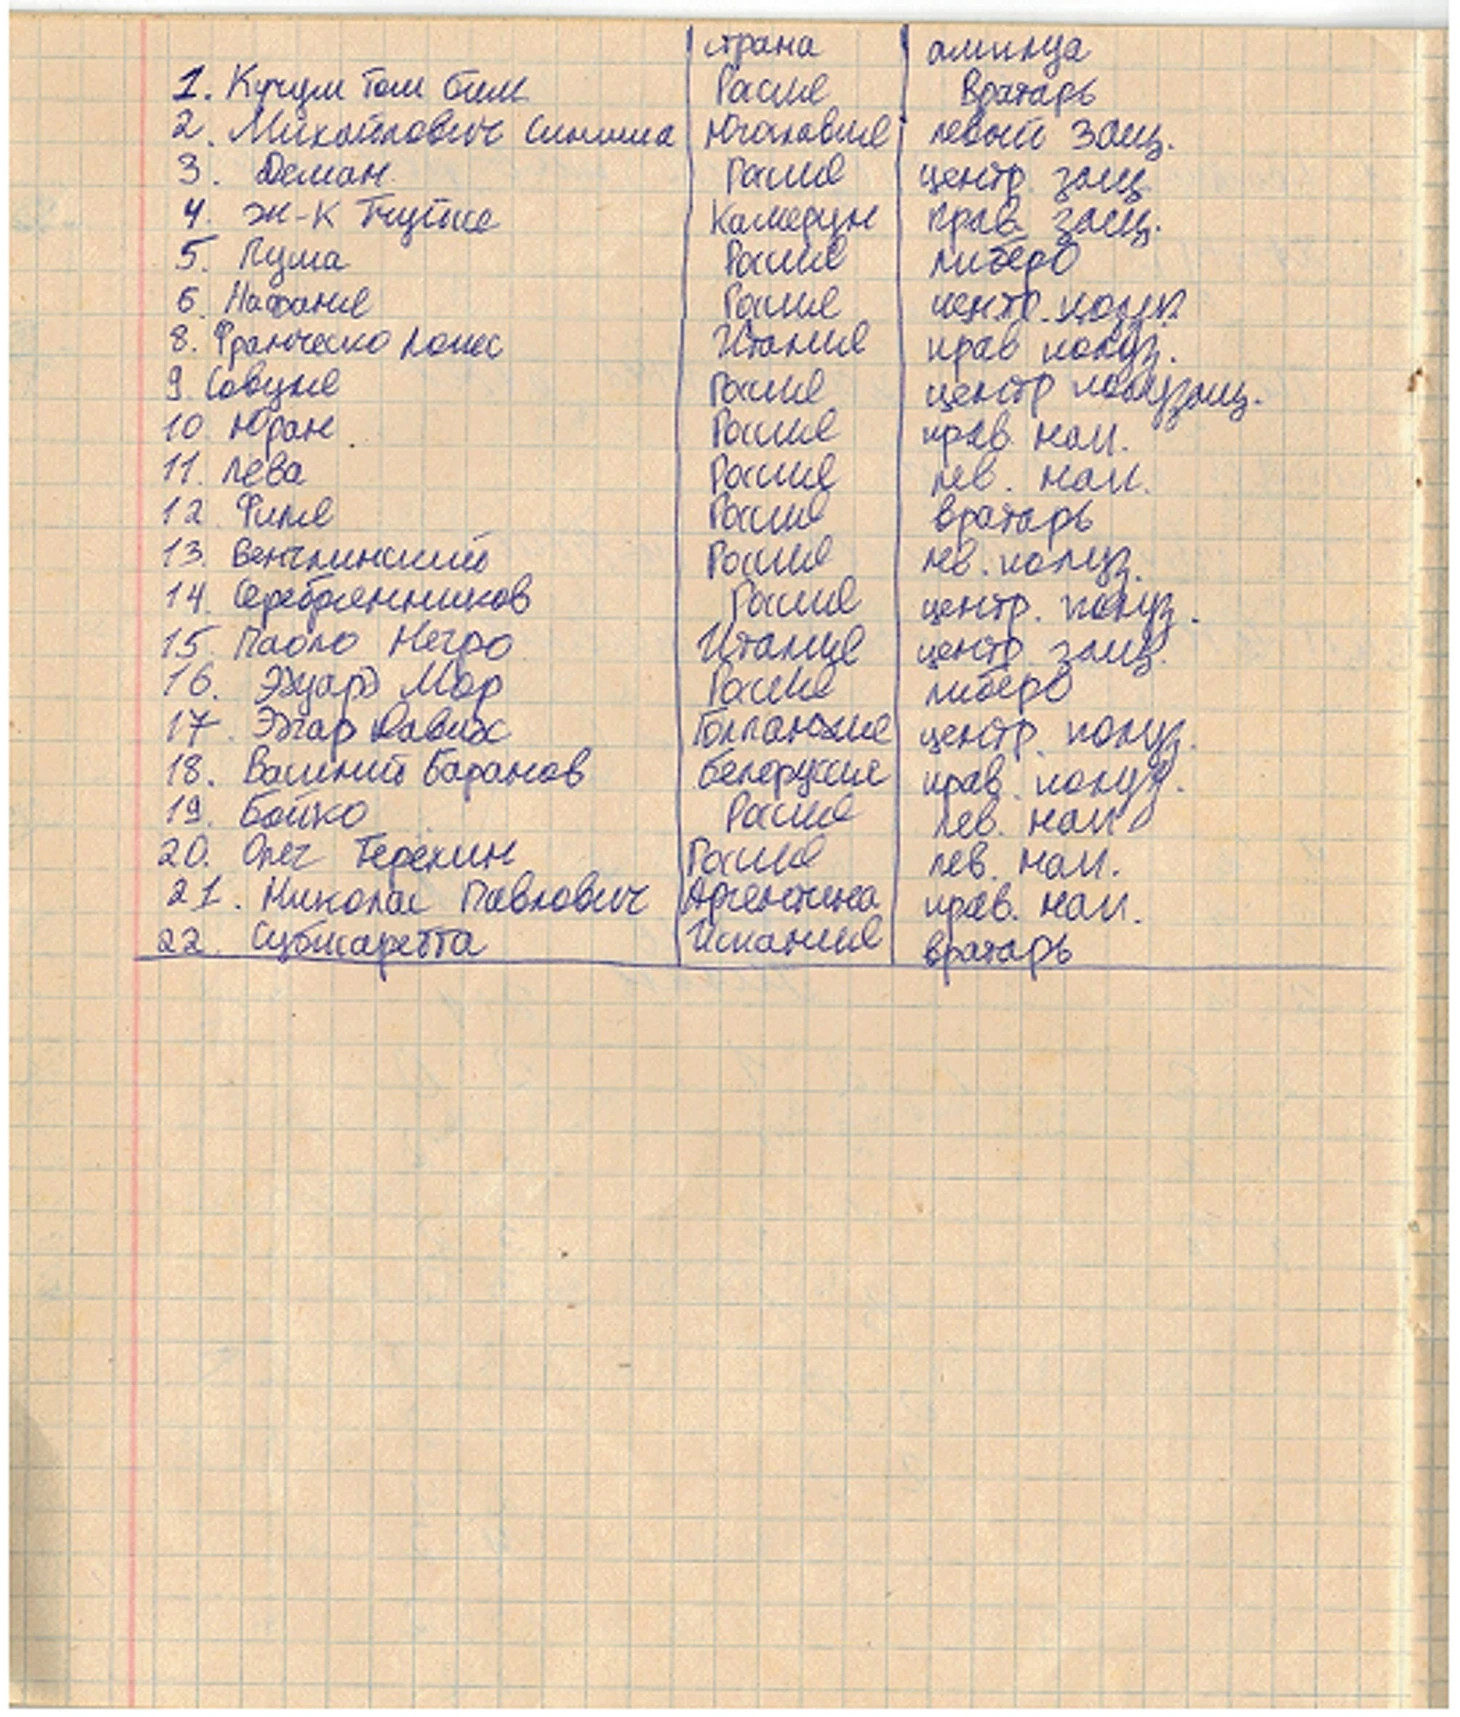 страна амплуа
1. Кучум Том Бим Россия Вратарь
2. Михайлович Синиша Югославия левый защ.
3. Деман Россия центр. защ.
4. Ж-К Птушке Камерун прав защ.
5. Пума Россия либеро
6. Нафаня Россия центр. полуз.
8. Франческо Лопес Италия прав полуз.
9. Совуня Россия центр полузащ.
10. Юран Россия прав. нап.
11. Лева Россия лев. нап.
12. Филя Россия вратарь
13. Венглинский Россия лев. полуз.
14. Серебренников Россия центр. полуз.
15. Паоло Негро Италия центр. защ.
16. Эдуард Мор Россия либеро
17. Эдгар Давидс Голландия центр. полуз.
18. Василий Баранов Белоруссия прав. полуз.
19. Бойко Россия лев. нап
20. Олег Терехин Россия лев. нап.
21. Николас Павлович Аргентина прав. нап.
22. Субисаретта Испания вратарь